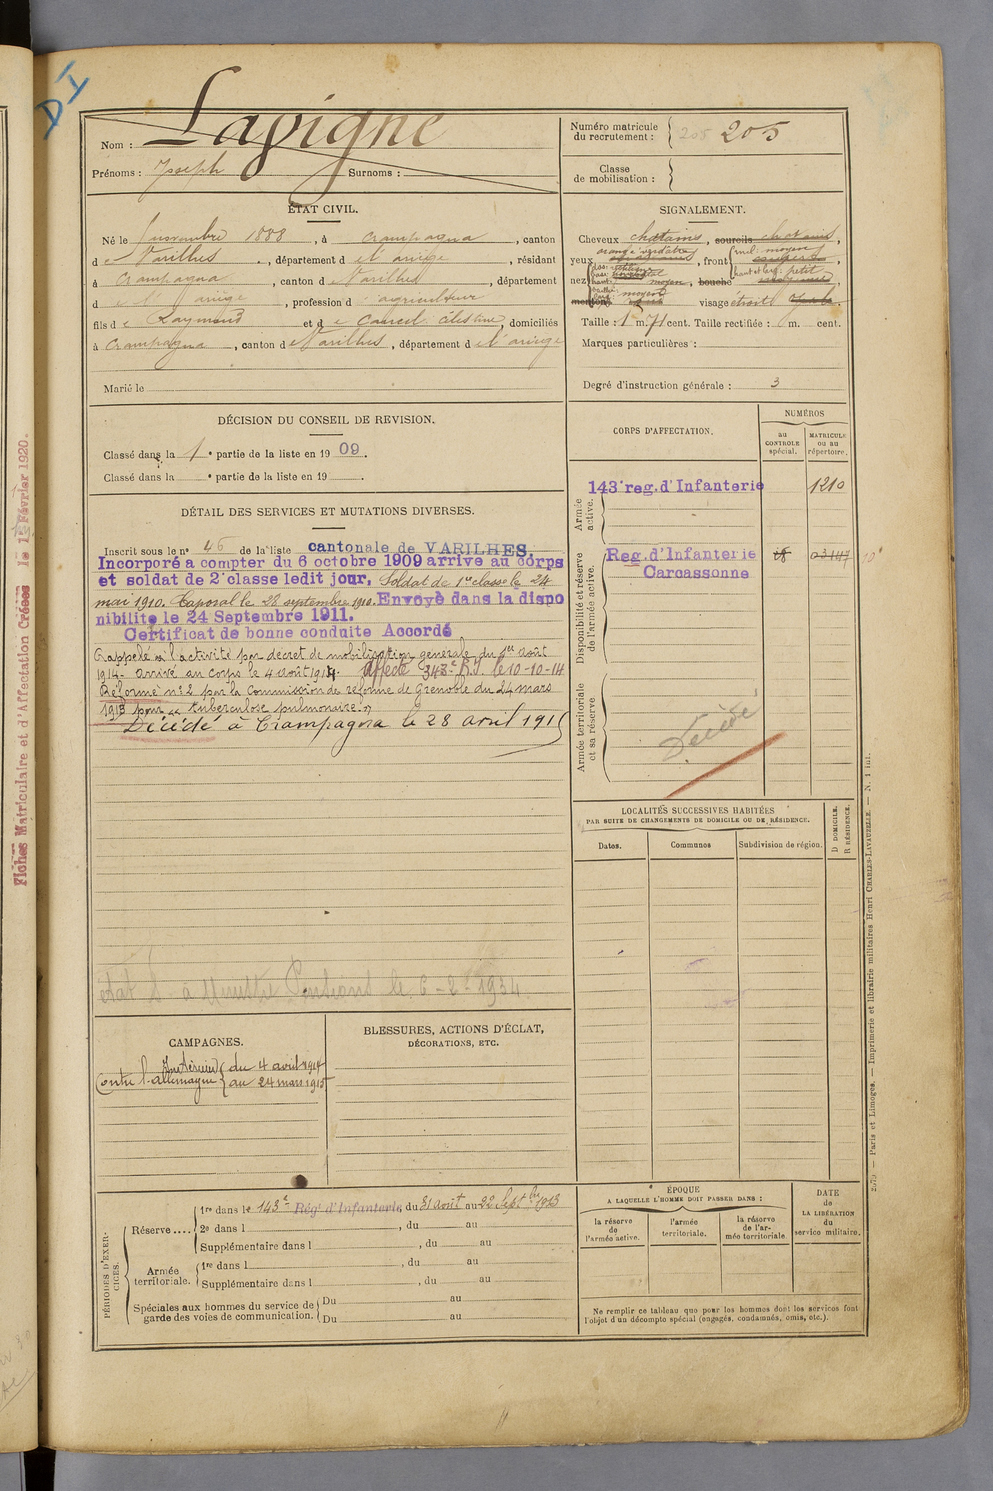 DI
Nom : Lavigne
Prénoms : Joseph Surnoms :
Numéro matricule du recrutement : 205 205
Classe de mobilisation :
ÉTAT CIVIL.
Né le novembre 1888, à Crampagna, canton
de Varilhes, département de l'ariège, résidant
à Crampagna, canton de Varilhes, département
de l'ariège, profession d'agriculteur
fils de Raymond et de Célestine, domiciliés
à Crampagna, canton de Varilhes, département de l'ariège
Marié le
SIGNALEMENT.
Cheveux chatains, sourcils chatains,
yeux orangé verdâtre, front incl: moyenne
haut et larg: petit
nez dos: base: haut: moyen, bouche
menton moyen visage étroit
Taille : 1 m. 71 cent. Taille rectifiée : m. cent.
Marques particulières :
Degré d'instruction générale : 3
DÉCISION DU CONSEIL DE REVISION.
Classé dans la 1e partie de la liste en 1909.
Classé dans la e partie de la liste en 19 .
DÉTAIL DES SERVICES ET MUTATIONS DIVERSES.
Inscrit sous le n° 46 de la liste cantonale de VARILHES.
Incorporé a compter du 6 octobre 1909 arrive au corps
et soldat de 2e classe ledit jour, Soldat de 1re classe le 24
mai 1910. Caporal le 28 septembre 1910. Envoyé dans la dispo
nibilite le 24 Septembre 1911.
Certificat de bonne conduite Accordé
Rappelé à l'activité par décret de mobilisation générale du 1er août
1914. arrivé au corps le 4 août 1914. affecté 343e R.I. le 10-10-14
Réformé n° 2 par la Commission de réforme de Grenoble du 24 mars
1915 pour "tuberculose pulmonaire"
Décédé à Crampagna le 28 avril 1915
état à Pensions le 6-2-1934.
CORPS D'AFFECTATION.
NUMÉROS
au CONTROLE spécial.
MATRICULE ou au répertoire.
Armée active.
143e reg. d'Infanterie 1210
Disponibilité et réserve de l'armée active.
Reg. d'Infanterie
Carcassonne
Armée territoriale et sa réserve
Décédé
LOCALITÉS SUCCESSIVES HABITÉES
PAR SUITE DE CHANGEMENTS DE DOMICILE OU DE RÉSIDENCE.
Dates. Communes Subdivision de région.
D DOMICILE.
R RÉSIDENCE.
CAMPAGNES.
Intérieur du 4 avril 1914
Contre l'allemagne au 24 mars 1915
BLESSURES, ACTIONS D'ÉCLAT,
DÉCORATIONS, ETC.
PÉRIODES D'EXERCICES.
Réserve ....
1re dans le 143e Rég' d'Infanterie, du 31 août au 22 Septbre 1913
2e dans l , du au
Supplémentaire dans l , du au
Armée territoriale.
1re dans l , du au
Supplémentaire dans l , du au
Spéciales aux hommes du service de garde des voies de communication.
Du au
Du au
ÉPOQUE
A LAQUELLE L'HOMME DOIT PASSER DANS :
la réserve de l'armée active.
l'armée territoriale.
la réserve de l'armée territoriale.
DATE de LA LIBÉRATION du service militaire.
Ne remplir ce tableau que pour les hommes dont les services font
l'objet d'un décompte spécial (engagés, condamnés, omis, etc.).
Paris et Limoges. — Imprimerie et librairie militaires Henri CHARLES-LAVAUZELLE. — N. 1 int.
Fiches Matriculaire et d'Affectation Créées le 15 Février 1920.